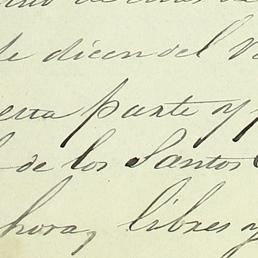 de dicen del
erta parte y
de los Santos
hora, libres y